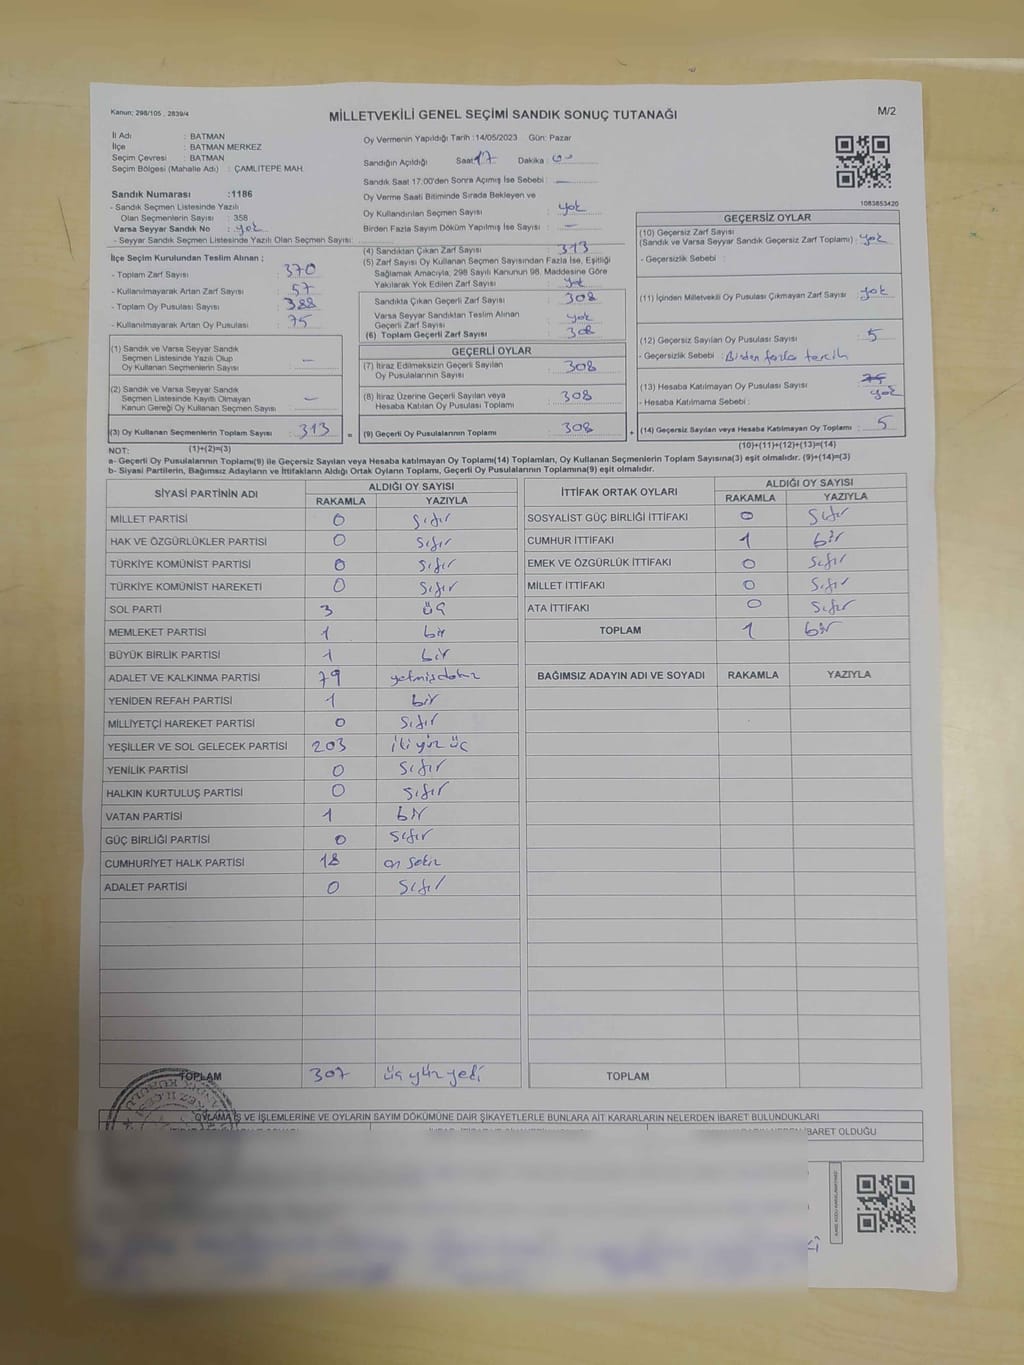 Kanun: 298/105 , 2839/4
MİLLETVEKİLİ GENEL SEÇİMİ SANDIK SONUÇ TUTANAĞI
M/2
İl Adı : BATMAN
İlçe : BATMAN MERKEZ
Seçim Çevresi : BATMAN
Seçim Bölgesi (Mahalle Adı) : ÇAMLITEPE MAH.
Sandık Numarası :1186
- Sandık Seçmen Listesinde Yazılı
Olan Seçmenlerin Sayısı : 358
Varsa Seyyar Sandık No : yok
- Seyyar Sandık Seçmen Listesinde Yazılı Olan Seçmen Sayısı:
İlçe Seçim Kurulundan Teslim Alınan ;
- Toplam Zarf Sayısı : 370
- Kullanılmayarak Artan Zarf Sayısı : 57
- Toplam Oy Pusulası : 388
- Kullanılmayarak Artan Oy Pusulası : 75
(1) Sandık ve Varsa Seyyar Sandık
Seçmen Listesinde Yazılı Olup
Oy Kullanan Seçmenlerin Sayısı : —
(2) Sandık ve Varsa Seyyar Sandık
Seçmen Listesinde Kayıtlı Olmayan
Kanun Gereği Oy Kullanan Seçmen Sayısı : —
(3) Oy Kullanan Seçmenlerin Toplam Sayısı : 313
(1)+(2)=(3)
Oy Vermenin Yapıldığı Tarih :14/05/2023 Gün: Pazar
Sandığın Açıldığı Saat 17 Dakika : 00
Sandık Saat 17.00'den Sonra Açımış İse Sebebi : —
Oy Verme Saati Bitiminde Sırada Bekleyen ve
Oy Kullandırılan Seçmen Sayısı : yok
Birden Fazla Sayım Döküm Yapılmış İse Sayısı : —
(4) Sandıktan Çıkan Zarf Sayısı : 313
(5) Zarf Sayısı Oy Kullanan Seçmen Sayısından Fazla İse, Eşitliği
Sağlamak Amacıyla, 298 Sayılı Kanunun 98. Maddesine Göre
Yakılarak Yok Edilen Zarf Sayısı : yok
Sandıkta Çıkan Geçerli Zarf Sayısı : 308
Varsa Seyyar Sandıktan Teslim Alınan
Geçerli Zarf Sayısı : yok
(6) Toplam Geçerli Zarf Sayısı : 308
GEÇERLİ OYLAR
(7) İtiraz Edilmeksizin Geçerli Sayılan
Oy Pusulalarının Sayısı : 308
(8) İtiraz Üzerine Geçerli Sayılan veya
Hesaba Katılan Oy Pusulası Toplamı : 308
= (9) Geçerli Oy Pusulalarının Toplamı : 308 +
1083853420
GEÇERSİZ OYLAR
(10) Geçersiz Zarf Sayısı
(Sandık ve Varsa Seyyar Sandık Geçersiz Zarf Toplamı) : yok
- Geçersizlik Sebebi :
(11) İçinden Milletvekili Oy Pusulası Çıkmayan Zarf Sayısı : yok
(12) Geçersiz Sayılan Oy Pusulası Sayısı : 5
- Geçersizlik Sebebi : Birden fazla tercih
(13) Hesaba Katılmayan Oy Pusulası Sayısı : 75 yok
- Hesaba Katılmama Sebebi :
(14) Geçersiz Sayılan veya Hesaba Katılmayan Oy Toplamı : 5
(10)+(11)+(12)+(13)=(14)
NOT:
a- Geçerli Oy Pusulalarının Toplamı(9) ile Geçersiz Sayılan veya Hesaba katılmayan Oy Toplamı(14) Toplamları, Oy Kullanan Seçmenlerin Toplam Sayısına(3) eşit olmalıdır. (9)+(14)=(3)
b- Siyasi Partilerin, Bağımsız Adayların ve İttifakların Aldığı Ortak Oyların Toplamı, Geçerli Oy Pusulalarının Toplamına(9) eşit olmalıdır.
SİYASİ PARTİNİN ADI ALDIĞI OY SAYISI
RAKAMLA YAZIYLA
MİLLET PARTİSİ 0 sıfır
HAK VE ÖZGÜRLÜKLER PARTİSİ 0 sıfır
TÜRKİYE KOMÜNİST PARTİSİ 0 sıfır
TÜRKİYE KOMÜNİST HAREKETİ 0 sıfır
SOL PARTİ 3 üç
MEMLEKET PARTİSİ 1 bir
BÜYÜK BİRLİK PARTİSİ 1 bir
ADALET VE KALKINMA PARTİSİ 79 yetmişdokuz
YENİDEN REFAH PARTİSİ 1 bir
MİLLİYETÇİ HAREKET PARTİSİ 0 sıfır
YEŞİLLER VE SOL GELECEK PARTİSİ 203 iki yüz üç
YENİLİK PARTİSİ 0 sıfır
HALKIN KURTULUŞ PARTİSİ 0 sıfır
VATAN PARTİSİ 1 bir
GÜÇ BİRLİĞİ PARTİSİ 0 sıfır
CUMHURİYET HALK PARTİSİ 18 on sekiz
ADALET PARTİSİ 0 sıfır
TOPLAM 307 üç yüz yedi
İTTİFAK ORTAK OYLARI ALDIĞI OY SAYISI
RAKAMLA YAZIYLA
SOSYALİST GÜÇ BİRLİĞİ İTTİFAKI 0 sıfır
CUMHUR İTTİFAKI 1 bir
EMEK VE ÖZGÜRLÜK İTTİFAKI 0 sıfır
MİLLET İTTİFAKI 0 sıfır
ATA İTTİFAKI 0 sıfır
TOPLAM 1 bir
BAĞIMSIZ ADAYIN ADI VE SOYADI RAKAMLA YAZIYLA
TOPLAM
OYLAMA İŞ VE İŞLEMLERİNE VE OYLARIN SAYIM DÖKÜMÜNE DAİR ŞİKAYETLERLE BUNLARA AİT KARARLARIN NELERDEN İBARET BULUNDUKLARI
İBARET OLDUĞU